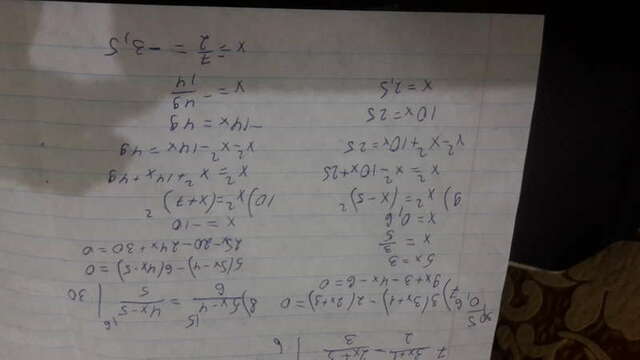 7) 3(3x+1)-2(2x+3)=0
9x+3-4x-6=0
5x=3
x=3/5
x=0,6
8) 5x-4/6 = 4x-5/5 | 30
5(5x-4)-6(4x-5)=0
25x-20-24x+30=0
x=-10
9) x²=(x-5)²
x²=x²-10x+25
x²-x²+10x=25
10x=25
x=2,5
10) x²=(x+7)²
x²=x²+14x+49
x²-x²-14x=49
-14x=49
x=-49/14
x=-7/2=-3,5